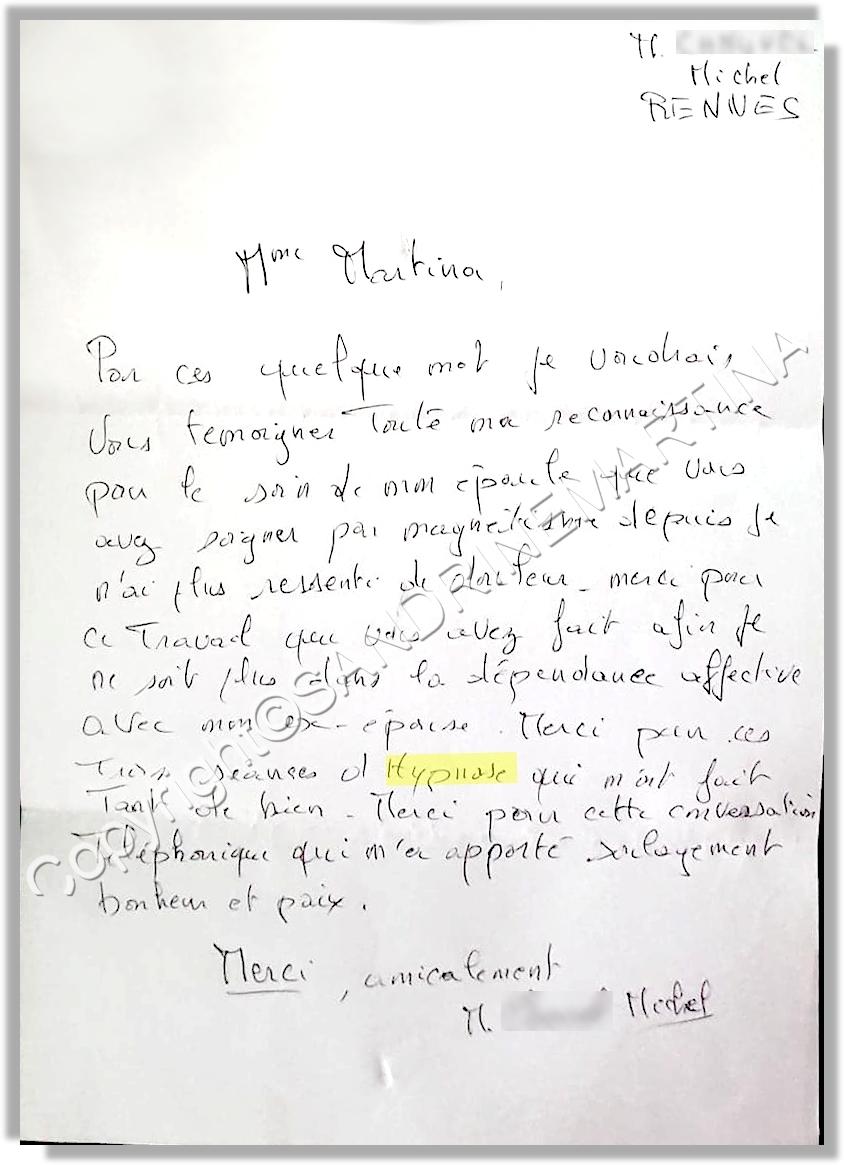 M.
Michel
RENNES
Mme Martina,
Par ces quelque mot je voudrais
vous temoigner Toute ma reconnaissance
pour le soin de mon épaule que vous
avez soigner par magnétisme depuis je
n'ai plus ressenti de douleur - merci pour
ce Travail que vous avez fait afin je
ne soit plus dans la dépendance affective
avec mon ex-epouse. Merci pour ces
Trois séances d'Hypnose qui m'ont fait
Tant de bien - Merci pour cette conversation
Téléphonique qui m'a apporté soulagement
bonheur et paix.
Merci, amicalement
M. Michel
Copyright©SANDRINEMARTINA